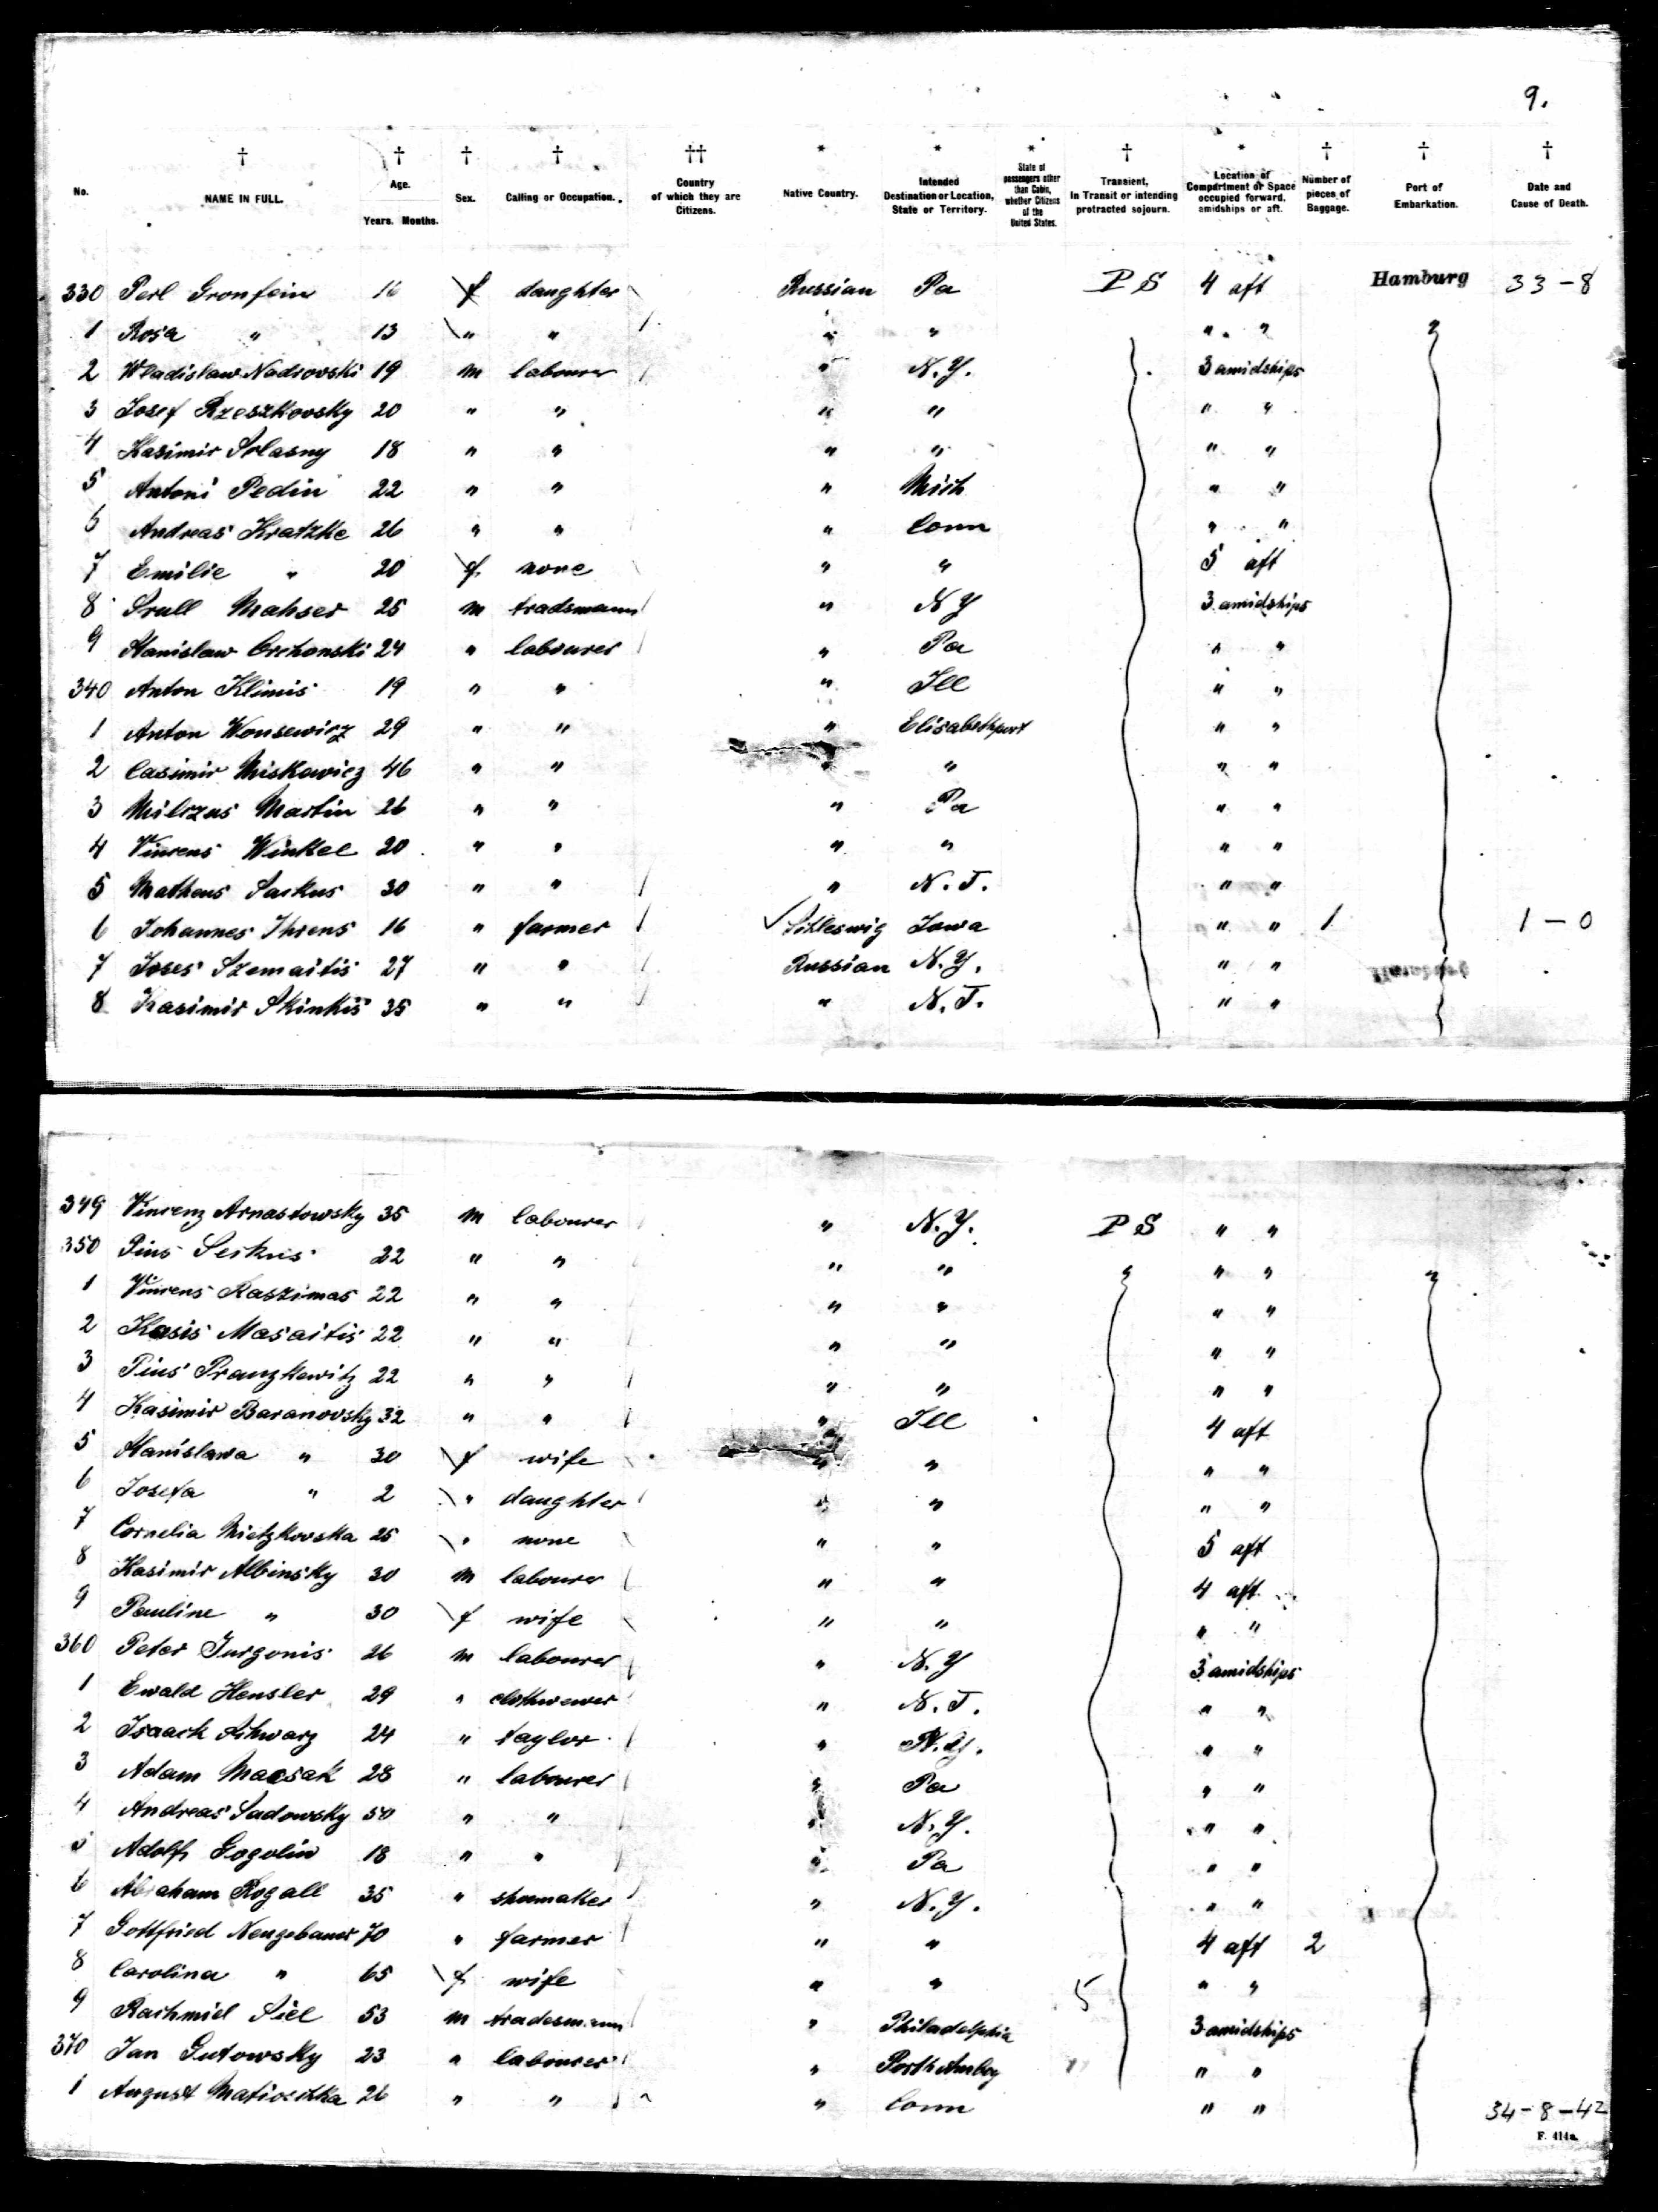 9.
No. † NAME IN FULL. † Age. Years. Months. † Sex. † Calling or Occupation. †† Country of which they are Citizens. * Native Country. * Intended Destination or Location, State or Territory. * State of passengers other than Cabin, whether Citizens of the United States. † Transient, In Transit or intending protracted sojourn. * Location of Compartment or Space occupied forward, amidships or aft. † Number of pieces of Baggage. † Port of Embarkation. † Date and Cause of Death.
330 Perl Gronfein 16 f daughter Russian Pa P S 4 aft Hamburg 33-8
1 Rosa " 13 " " " " " "
2 Wladislaw Nadrovski 19 m labourer " N.Y. 3 amidships
3 Josef Rzeszkovsky 20 " " " " " "
4 Kasimir Solasny 18 " " " " " "
5 Antoni Pedin 22 " " " Mich " "
6 Andreas Kratzke 26 " " " Conn " "
7 Emilie " 20 f. none " " 5 aft
8 Srull Mahser 25 m tradsmann " N Y 3 amidships
9 Stanislaw 24 " labourer " Pa " "
340 Anton Klimis 19 " " " Ill " "
1 Anton Wonsewicz 29 " " " Elisabethport " "
2 Casimir Miskawicz 46 " " " " " "
3 Milczus Martin 26 " " " Pa " "
4 Vincens Winkel 20 " " " " " "
5 Matheus Sackus 30 " " " N.J. " "
6 Johannes Ihrens 16 " farmer Schleswig Iowa " " 1 1-0
7 Joses Szemaitis 27 " " Russian N.Y. " "
8 Kasimir Skinkis 35 " " " N.J. " "
349 Vincenz Arnastowsky 35 m labourer " N.Y. P S " "
350 Pius Seskus 22 " " " " " "
1 Vincens Raszimas 22 " " " " " "
2 Kasis Masaitis 22 " " " " " "
3 Pius Pranzkewitz 22 " " " " " "
4 Kasimir Baranovsky 32 " " " Ill 4 aft
5 Stanislawa " 30 f wife " " " "
6 Josefa " 2 " daughter " " " "
7 Cornelia Mietzkovska 25 " none " " 5 aft
8 Kasimir Albinsky 30 m labourer " " 4 aft
9 Pauline " 30 f wife " " " "
360 Peter Jurgonis 26 m labourer " N.Y 3 amidships
1 Ewald Hensler 29 " clothwewer " N.J. " "
2 Isaack Schwarz 24 " taylor " N.Y. " "
3 Adam Macsak 28 " labourer " Pa " "
4 Andreas Sadowsky 50 " " " N.Y. " "
5 Adolf Gogolin 18 " " " Pa " "
6 Abraham Rogall 35 " shoemaker " N.Y. " "
7 Gottfried Neugebauer 70 " farmer " " 4 aft 2
8 Carolina " 65 f wife " " 5 " "
9 Rachmiel Siel 53 m tradesmann " Philadelphia 3 amidships
370 Jan Gutowsky 23 " labourer " Perth Amboy " "
1 August 26 " " " Conn " " 34-8-42
F. 414a.